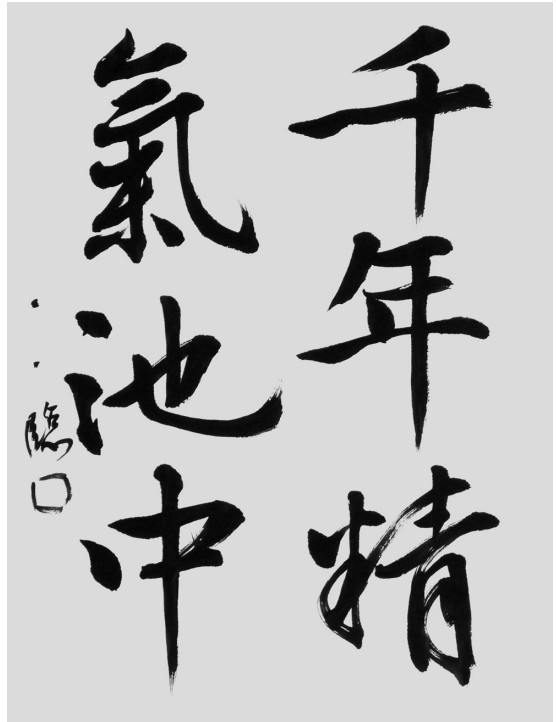 千年精
氣池中
臨